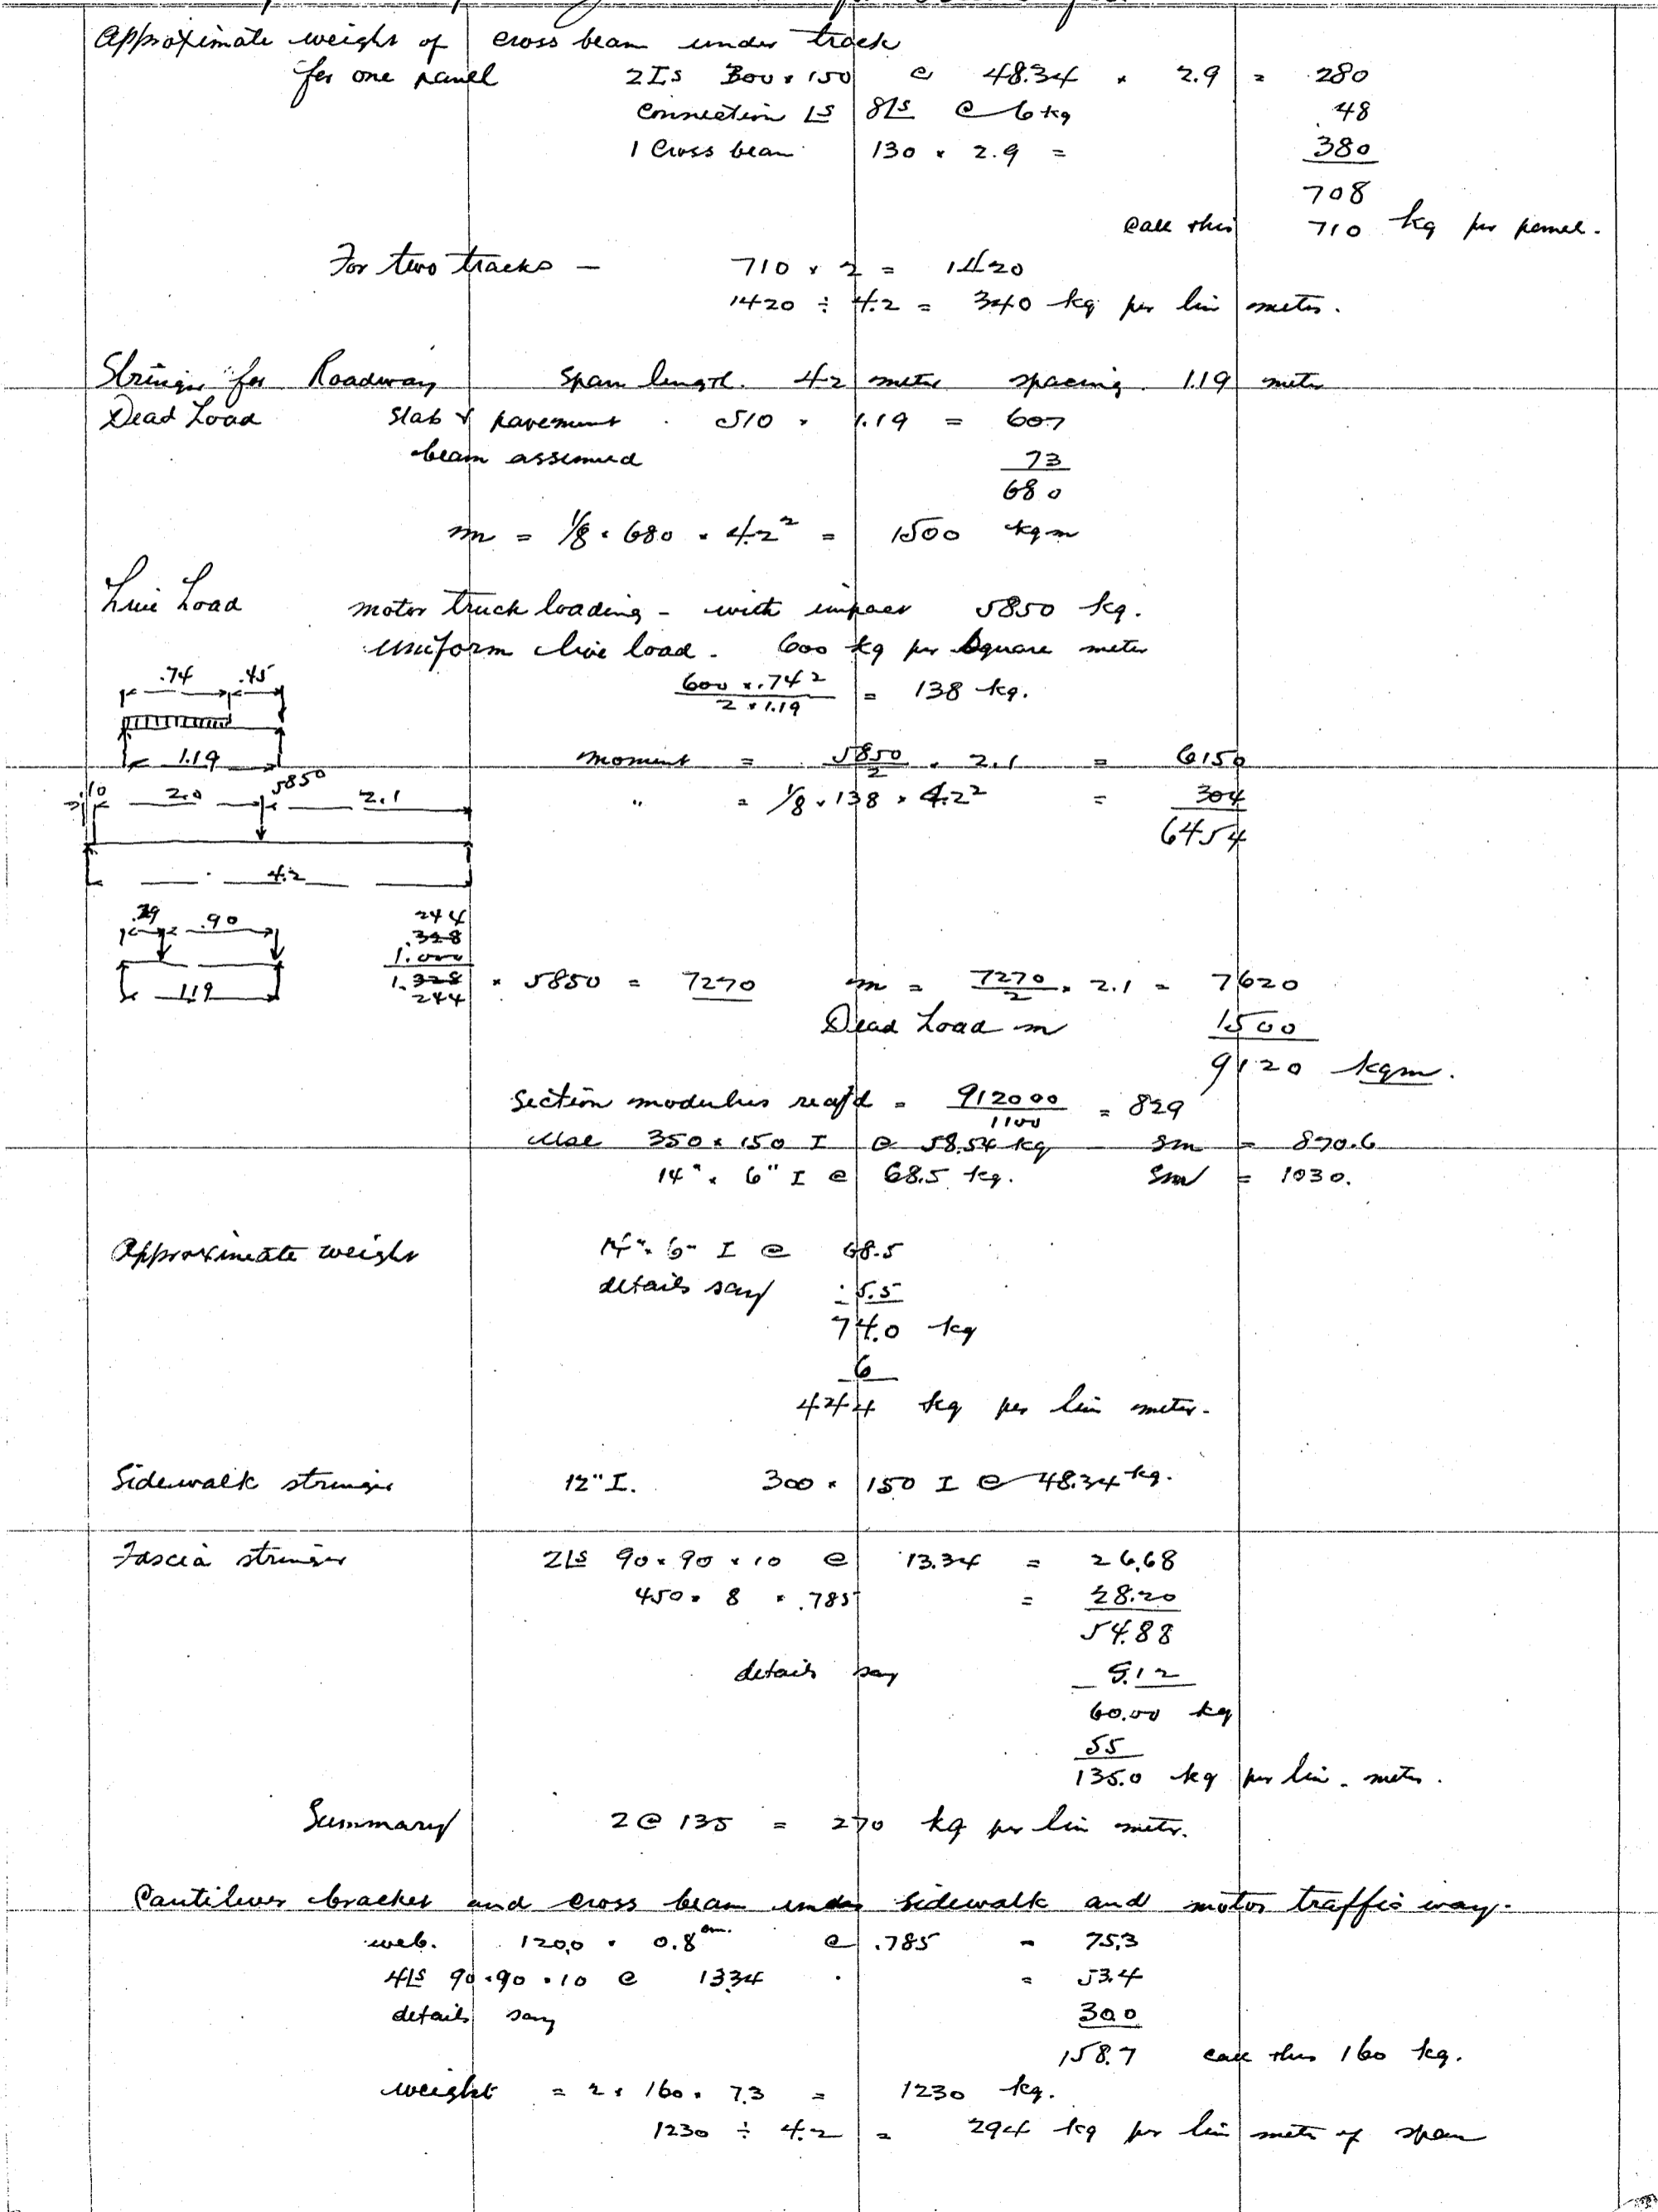 Approximate weight of cross beam under track
for one panel 2Is 300 × 150 @ 48.34 × 2.9 = 280
Connection Ls 8Ls @ 6 kg 48
1 Cross beam 130 × 2.9 = 380
708
Call this 710 kg per panel.
For two tracks — 710 × 2 = 1420
1420 ÷ 4.2 = 340 kg per lin meter.
Stringer for Roadway Span length. 4.2 meter spacing. 1.19 meter
Dead Load Slab & pavement 510 × 1.19 = 607
beam assumed 73
680
m = 1/8 × 680 × 4.2² = 1500 kgm
Live Load motor truck loading - with impact 5850 kg.
Uniform live load. 600 kg per square meter
.74 .45
600 × .74² / 2 × 1.19 = 138 kg.
1.19
moment = 5850/2 × 2.1 = 6150
.10 2.0 5850 2.1
" = 1/8 × 138 × 4.2² = 304
6454
4.2
.29 .90
244
.328
1.000
1.19
1.328 × 5850 = 7270 m = 7270/2 × 2.1 = 7620
244
Dead Load m 1500
9120 kgm.
Section modulus req'd = 912000/1100 = 829
Use 350 × 150 I @ 58.54 kg Sm = 870.6
14" × 6" I @ 68.5 kg. Sm = 1030.
Approximate weight 14" × 6" I @ 68.5
details say 5.5
74.0 kg
6
444 kg per lin meter.
Sidewalk stringer 12" I. 300 × 150 I @ 48.34 kg.
Fascia stringer 2Ls 90 × 90 × 10 @ 13.34 = 26.68
450 × 8 × .785 = 28.20
54.88
details say 5.12
60.00 kg
55
135.0 kg per lin. meter.
Summary 2 @ 135 = 270 kg per lin meter.
Cantilever bracket and cross beam under sidewalk and motor traffic way.
web. 120.0 × 0.8 cm. @ .785 = 75.3
4Ls 90 × 90 × 10 @ 13.34 = 53.4
details say 30.0
158.7 call this 160 kg.
weight = 2 × 160 × 7.3 = 1230 kg.
1230 ÷ 4.2 = 294 kg per lin meter of span